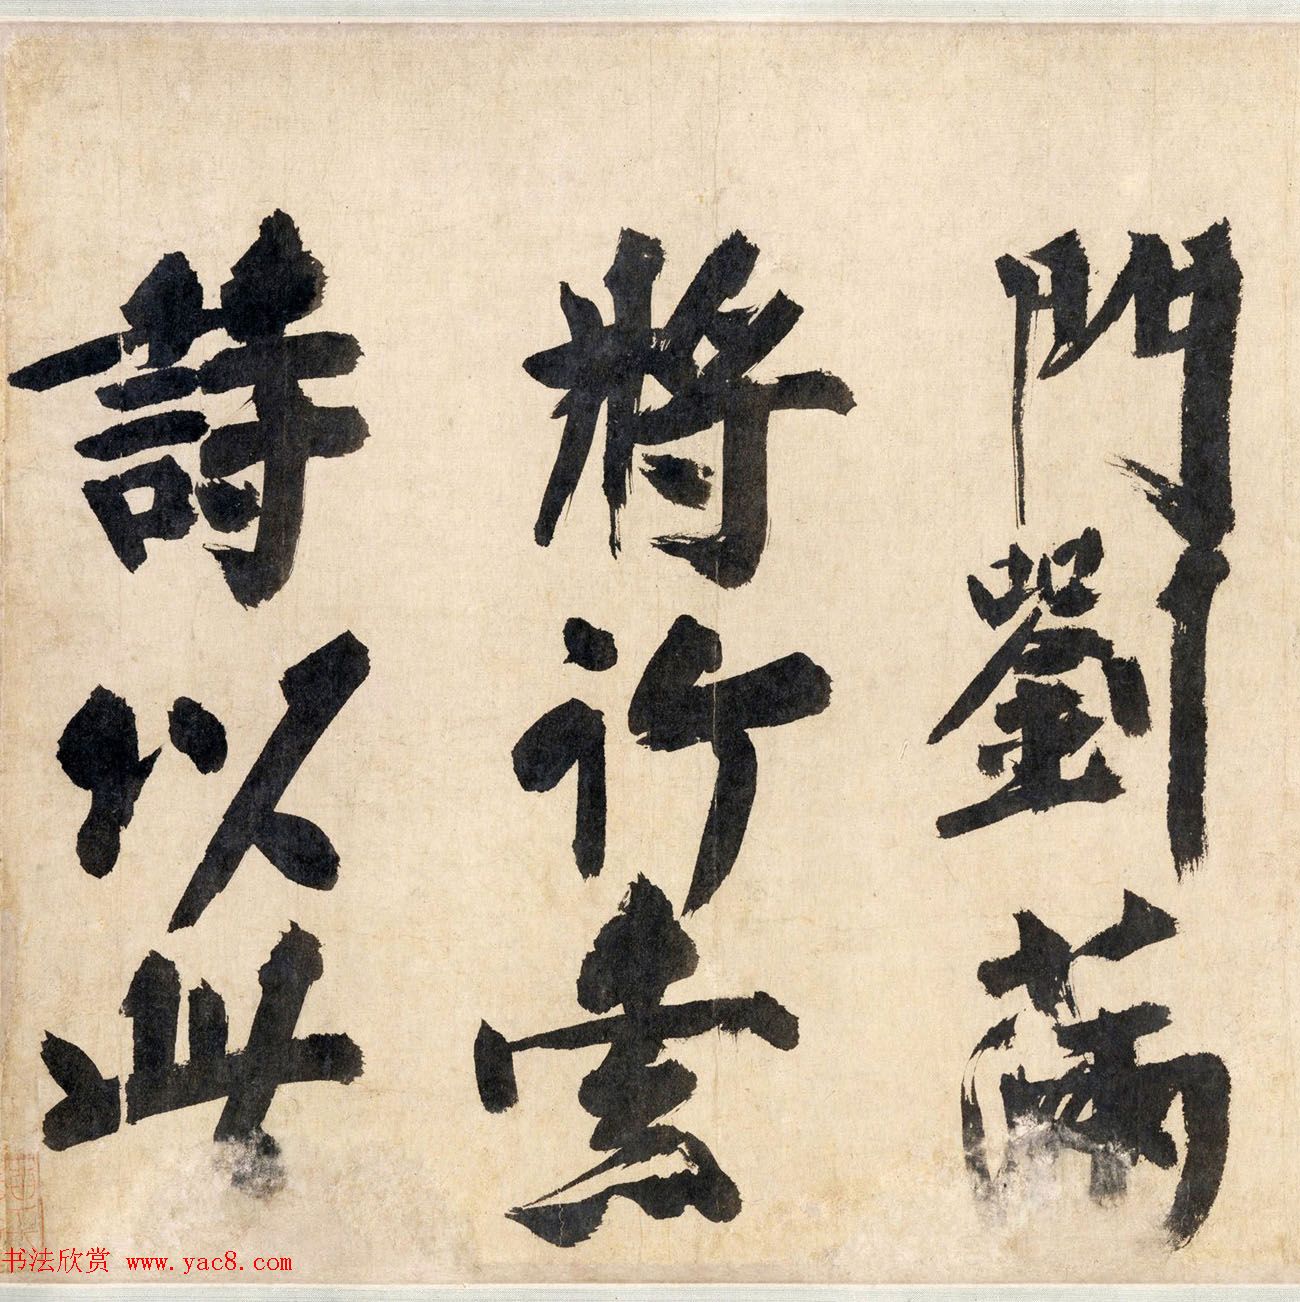 門劉滿
將行索
詩以此
书法欣赏 www.yac8.com